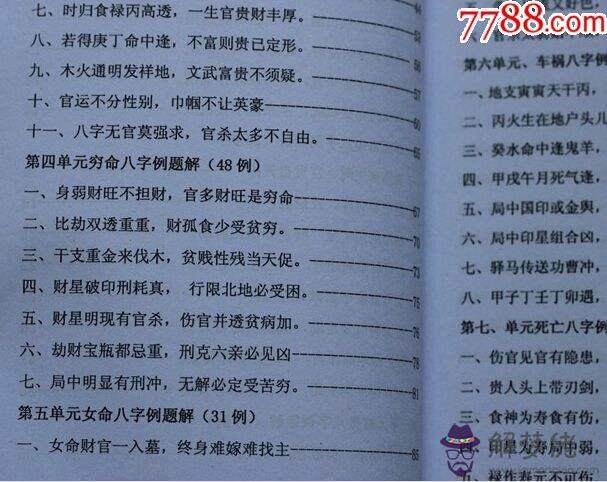 7788.com
七、时归食禄丙高透，一生官贵财丰厚。
八、若得庚丁命中逢，不富则贵已定形。 53
九、木火通明发祥地，文武富贵不须疑。 56
十、官运不分性别，巾帼不让英豪 60
十一、八字无官莫强求，官杀太多不自由。 65
第四单元穷命八字例题解（48 例）
一、身弱财旺不担财，官多财旺是穷命 67
二、比劫双透重重，财孤食少受贫穷。 70
三、干支重金来伐木，贫贱性残当天促。 73
四、财星破印刑耗真，行限北地必受困。 75
五、财星明现有官杀，伤官并透贫病加。 76
六、劫财宝瓶都忌重，刑克六亲必见凶 78
七、局中明显有刑冲，无解必定受苦穷。 81
第五单元女命八字例题解（31 例）
一、女命财官一入墓，终身难嫁难找主 85
第六单元、车祸八字例
一、地支寅寅天干丙，
二、丙火生在地户头儿
三、癸水命中逢鬼羊，
四、甲戌午月死气逢，
五、局中国印或金舆，
六、局中印星组合凶，
七、驿马传送功曹冲，
八、甲子丁壬丁卯遇，
第七、单元死亡八字例
一、伤官见官有隐患，
二、贵人头上带刃剑，
三、食神为寿食有伤，
四、印星为寿局中弱，
五、禄作寿元不可伤
解梦佬